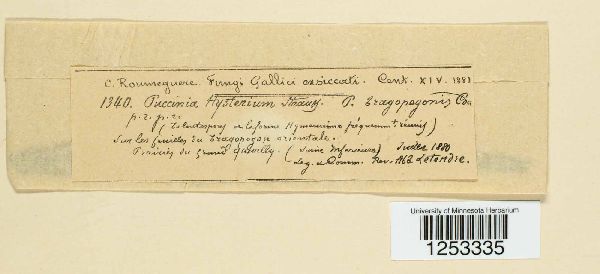 C. Roumeguere. Fungi Gallici exsiccati. Cent. XIV. 1881
1340. Puccinia Hysterium Strauss. P. Tragopogonis Co
p. z. p. z.
(Teleutospores et la forme Hymenium fréquemmt réunis)
Sur les feuilles du Tragopogon orientale.
Prairies du grand Quevilly. (Seine Inférieure) Juillet 1880
Leg. et Comm. Rev. Abb. Letendre.
University of Minnesota Herbarium
1253335